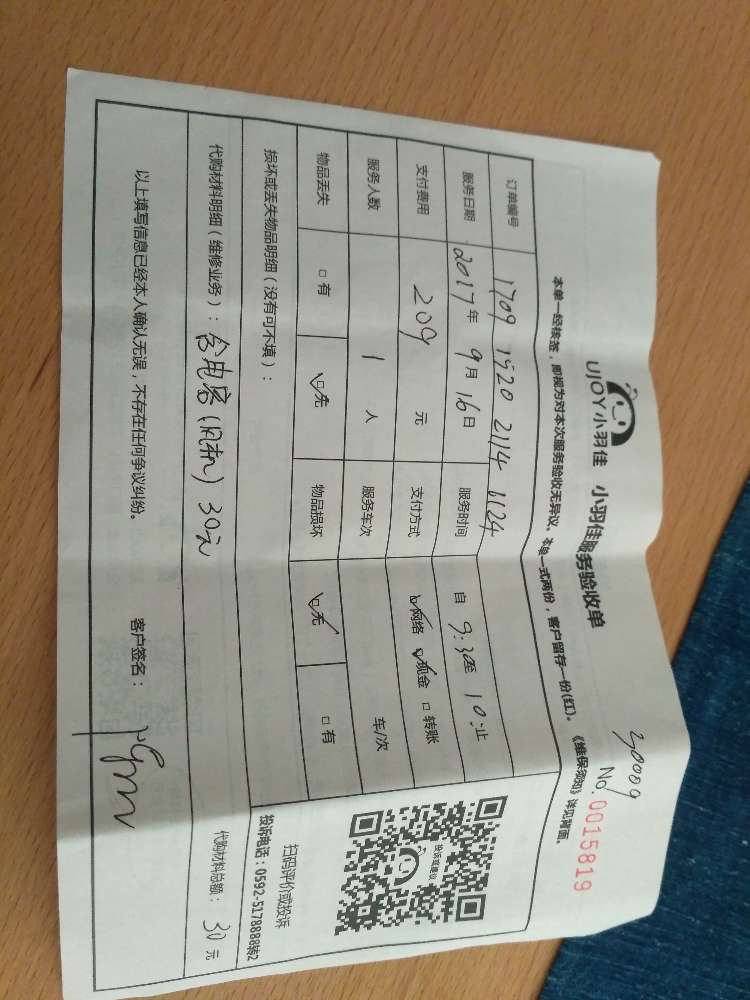 UJOY小羽佳 小羽佳服务验收单
30009
No. 0015819
本单一经核签，即视为对本次服务验收无异议。本单一式两份，客户留存一份(红)。《维保须知》详见背面。
订单编号 1709 1920 2114 1124
服务日期 2017年 9月 16日 服务时间 自 9:30至 10:止
支付费用 209 元 支付方式 网络 现金 转账
服务人数 1 人 服务车次 车/次
物品丢失 有 无 物品损坏 无 有
损坏或丢失物品明细（没有可不填）：
投诉或建议
扫码评价或投诉
投诉电话：0592-5178888转2
代购材料明细（维修业务）： 含电容(风机) 30元 代购材料总额： 30 元
以上填写信息已经本人确认无误，不存在任何争议纠纷。 客户签名：